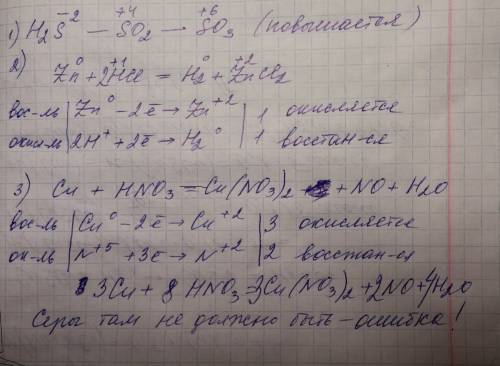 1) H₂S⁻² — S⁺⁴O₂ — S⁺⁶O₃ (повышается)
2) Zn⁰ + 2H⁺¹Cl = H₂⁰ + Zn⁺²Cl₂
вос-ль | Zn⁰ - 2ē → Zn⁺² | 1 окисляется
окисл-ль | 2H⁺ + 2ē → H₂⁰ | 1 восстан-ся
3) Cu + HNO₃ = Cu(NO₃)₂ + NO + H₂O
вос-ль | Cu⁰ - 2ē → Cu⁺² | 3 окисляется
ок-ль | N⁺⁵ + 3ē → N⁺² | 2 восстан-ся
3Cu + 8HNO₃ = 3Cu(NO₃)₂ + 2NO + 4H₂O
Серы там не должно быть - ошибка!